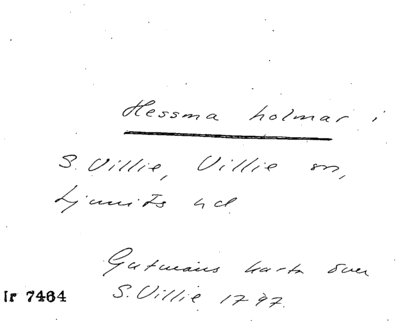 Hessma holmar i
S. Villie, Villie sn,
Ljunits hd.
Gutmans karta över
Ir 7464 S. Villie 1797.